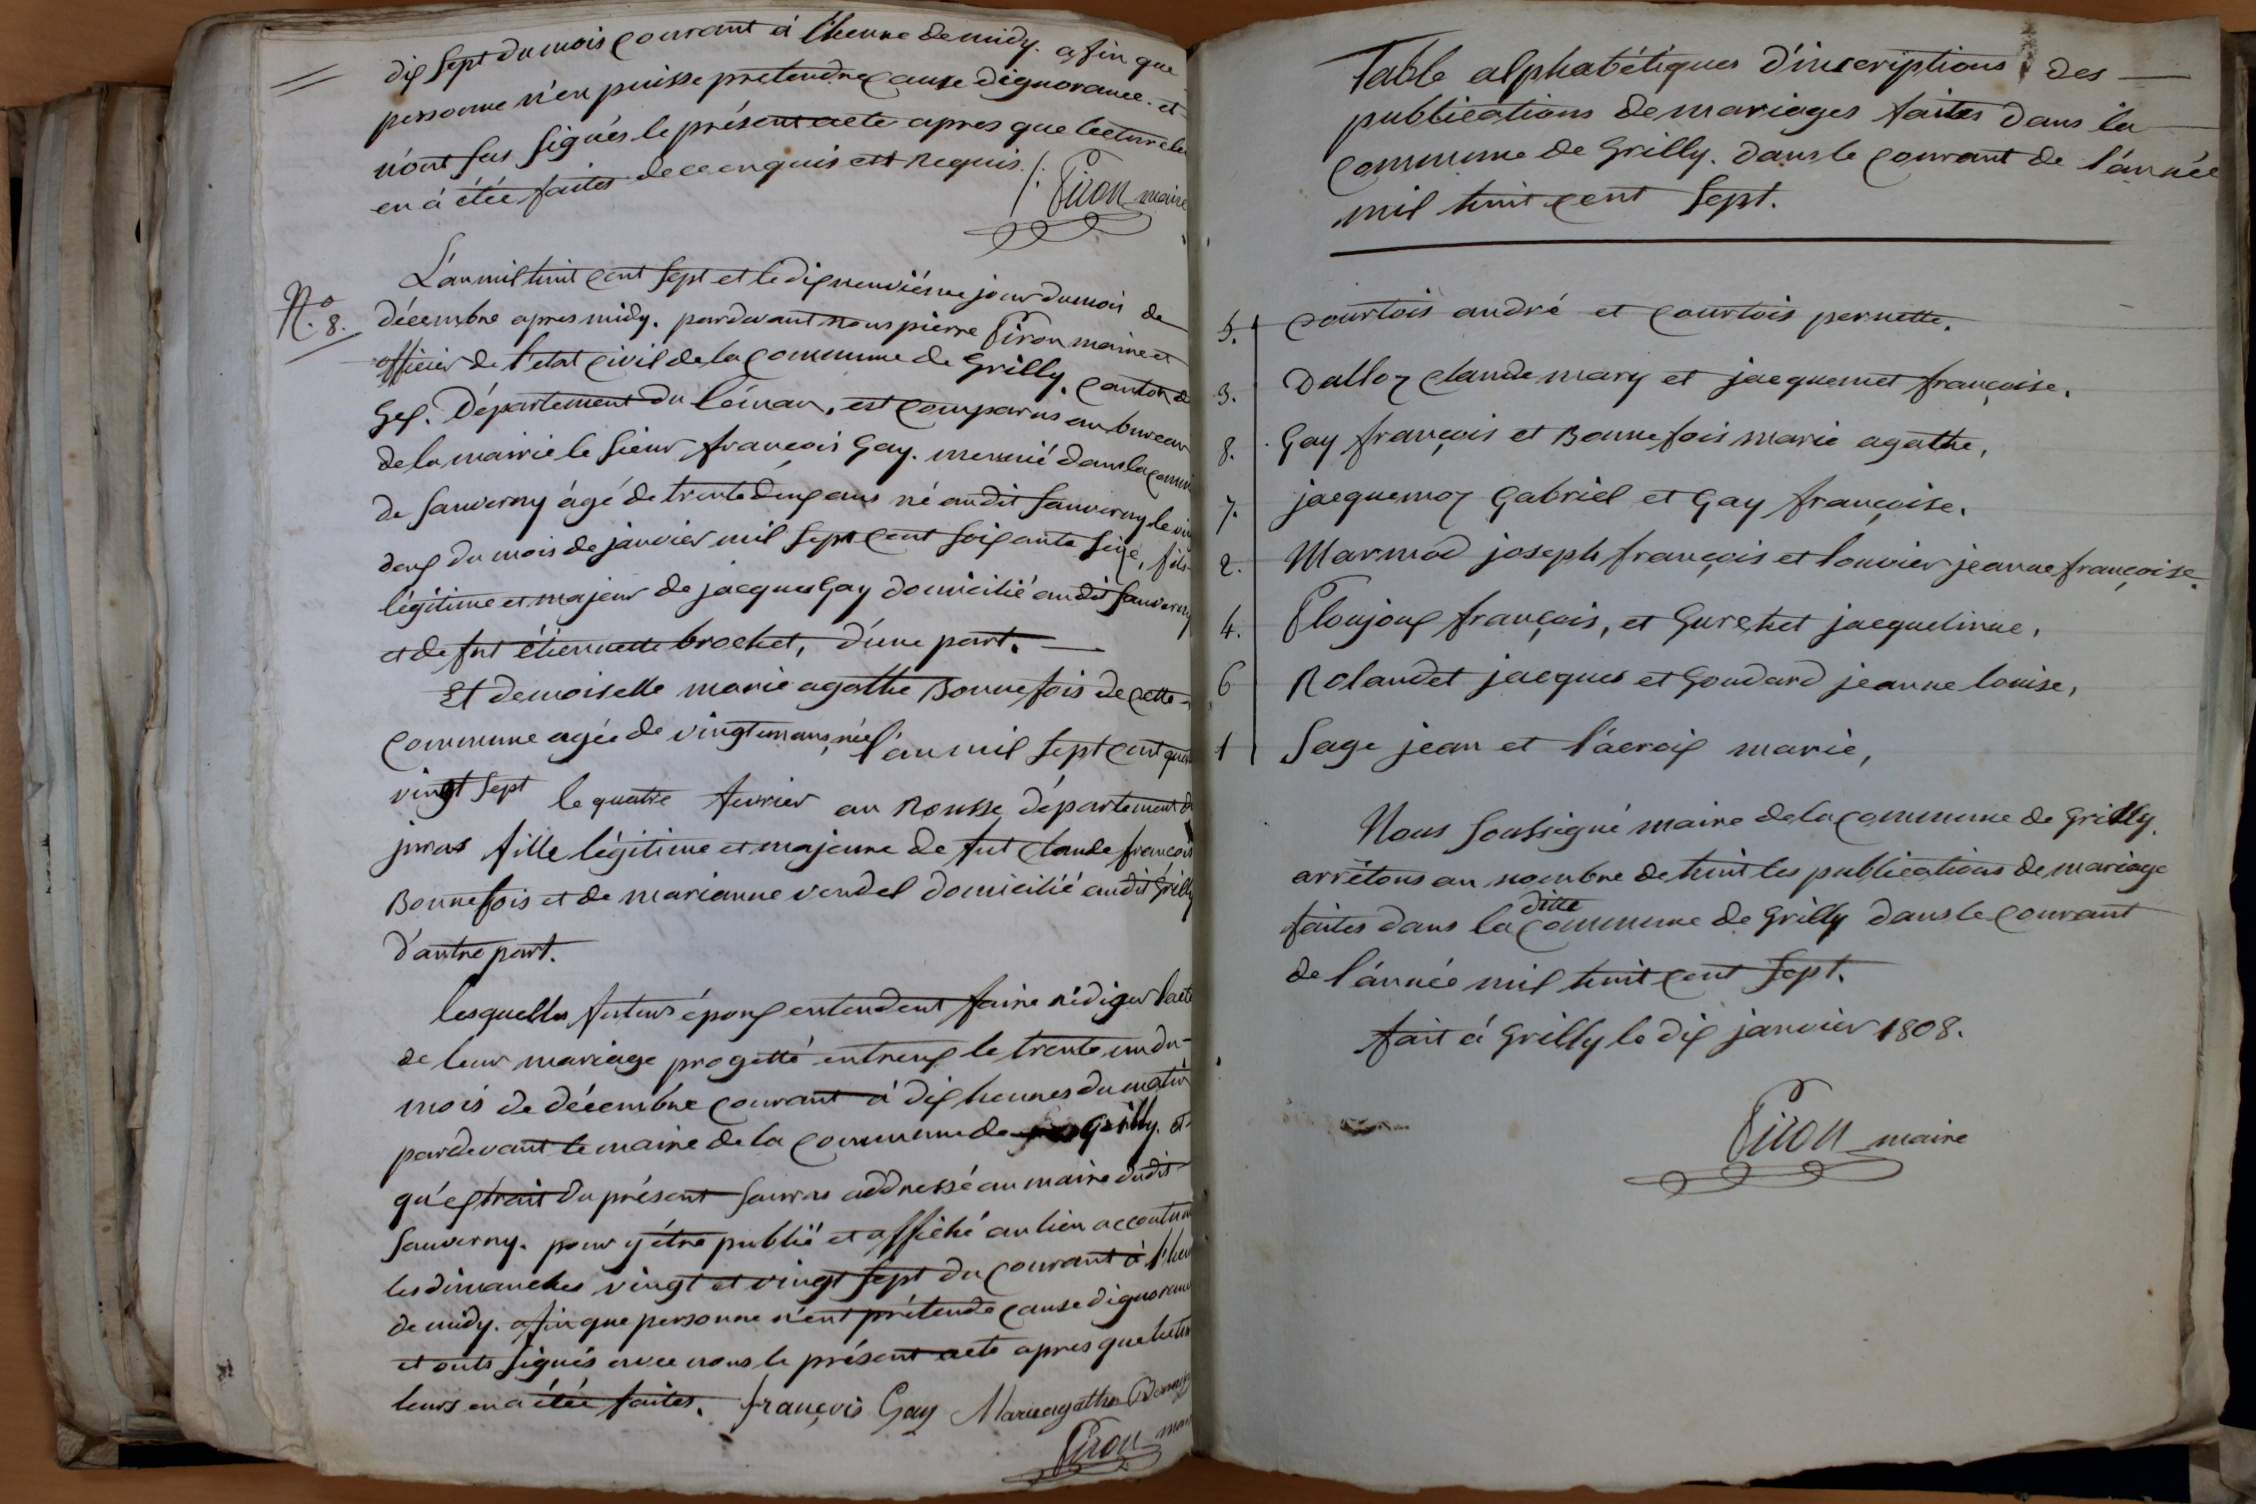 dix sept du mois courant à l'heure de midy. afin que
personne n'en puisse pretendre cause dignorance. et
n'ont sus signés le présent acte apres que lecture
en à étée faites de ce enquis ett Requis. /. Piron maire
N.o 8.
L'an mil huit cent sept et le dix neuviéme jour du mois de
décembre apres midy. pardevant nous pierre Piron maire et
officier de l'etat Civil de la Commune de Grilly. canton de
Gex. Département du léman, est comparus au bureau
de la mairie le sieur françois Gay. dans la
de Sauverny ágé de trente deux ans né audit Sauverny le
deux du mois de janvier mil sept cent soixante seize, fils
légitime et majeur de jacques Gay domicilié audit Sauverny
et de fut étiennette brochet, d'une part.
Et demoiselle marie agathe Bonnefois de cette
commune agée de vingt un ans, née l'an mil sept cent
vingt sept le quatre fevrier au Rousse, département
juras fille légitime et majeure de fut claude françois
Bonnefois et de marianne vendel domicilié audit Grilly
d'autre part.
lesquelles futurs époux entendent faire rédiger l'acte
de leur mariage progetté entreux le trente un du
mois de décembre courant à dix heures du matin
pardevant le maire de la commune de Grilly. et
qu'extrait du présent sauras addressé au maire dudit
Sauverny. pour y étre publié et affiché au lieu accoutumé
les dimanches vingt et vingt sept du courant à l'heure
de midy. afin que personne n'ent prétende cause d'ignorance
et onts signés avec nous le présent acte apres que lecture
leurs en a étée faites. françois Gay Marie agathe
Piron
Table alphabétiques d'inscriptions des
publications de mariages faites dans la
commune de Grilly. dans le courant de l'année
mil huit cent sept.
5. Courtois andré et Courtois pernette.
3. Dalloz claude mary et jacquemet françoise.
8. Gay françois et Bonnefois marie agathe,
7. jacquemoz Gabriel et Gay françoise.
2. Marmod joseph françois et louvier jeanne françoise.
4. Ploujoux françois, et Gurchet jacquelinne,
6 Rolandet jacques et Goudard jeanne louise,
1 Sage jean et l'acroix marie,
Nous soussigné maire de la commune de Grilly.
arrêtons au nombre de huit les publications de mariage
faites dans la ditte commune de Grilly dans le courant
de l'année mil huit cent sept.
fait á Grilly le dix janvier 1808.
Piron maire